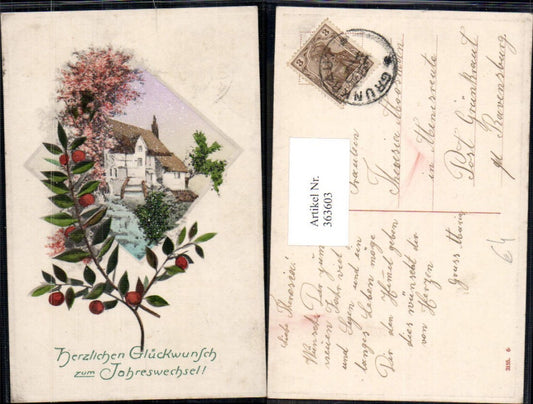 Herzlichen Glückwunsch
zum Jahreswechsel!
3
3
GRÜNK
Artikel Nr.
363603
Fräulein
Theresia
in Menisreute
Post Grünkraut
Ravensburg
Liebe Theresia!
Wünsche Dir zum
neuen Jahr viel
und Segen und ein
langes Leben möge
Dir der Himmel geben
dies wünscht dir
von Herzen
Gruss Maria
64
3135. 6